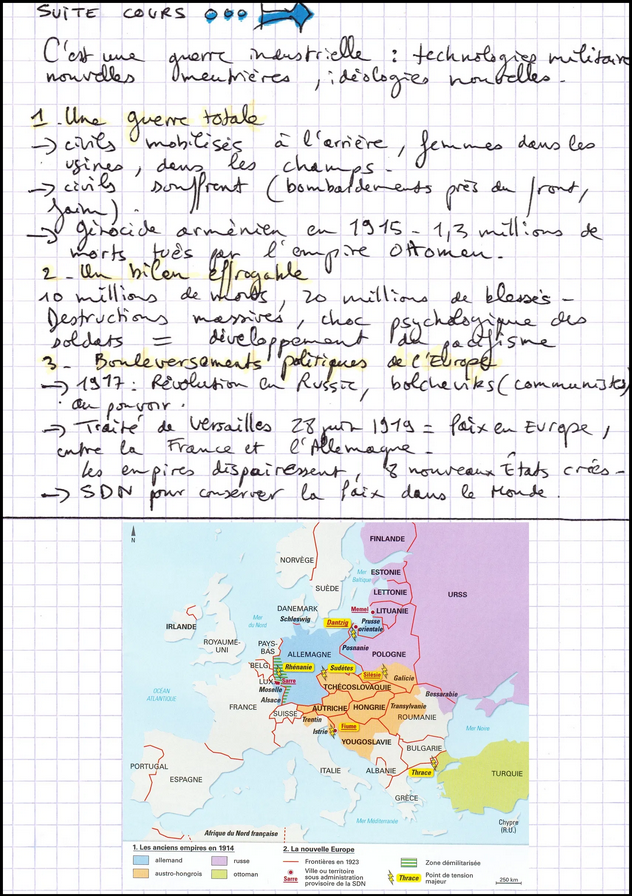 SUITE COURS
C'est une guerre industrielle : technologies militaires
nouvelles meutrières, idéologies nouvelles.
1. Une guerre totale
-> civils mobilisés à l'arrière, femmes dans les
usines, dans les champs.
-> civils souffrent (bombardements près du front,
faim).
-> génocide arménien en 1915 - 1,3 millions de
morts tués par l'empire Ottoman.
2 - Un bilan effroyable
10 millions de morts, 20 millions de blessés -
Destructions massives, choc psychologique des
soldats = développement du pacifisme
3 - Bouleversements politiques de l'Europe
-> 1917 : Révolution en Russie, bolcheviks (communistes)
au pouvoir.
-> Traité de Versailles 28 juin 1919 = Paix en Europe,
entre la France et l'Allemagne.
les empires dispairessent, 8 nouveaux États créés -
-> SDN pour conserver la Paix dans le Monde.
N
FINLANDE
NORVÈGE
SUÈDE
ESTONIE
Mer Baltique
LETTONIE
URSS
Memel
LITUANIE
DANEMARK
Schleswig
Mer du Nord
Dantzig
Prusse orientale
IRLANDE
ROYAUME-UNI
PAYS-BAS
Posnanie
ALLEMAGNE
POLOGNE
BELG.
Rhénanie
Sudètes
Silésie
Galicie
LUX.
Sarre
Moselle
TCHÉCOSLOVAQUIE
Bessarabie
Alsace
OCÉAN ATLANTIQUE
FRANCE
SUISSE
AUTRICHE
HONGRIE
Transylvanie
ROUMANIE
Trentin
Istrie
Fiume
Mer Noire
YOUGOSLAVIE
BULGARIE
PORTUGAL
ESPAGNE
ITALIE
ALBANIE
Thrace
TURQUIE
GRÈCE
Mer Méditerranée
Chypre (R.U.)
Afrique du Nord française
1. Les anciens empires en 1914
allemand
russe
austro-hongrois
ottoman
2. La nouvelle Europe
Frontières en 1923
Sarre
Ville ou territoire
sous administration
provisoire de la SDN
Zone démilitarisée
Thrace
Point de tension
majeur
250 km